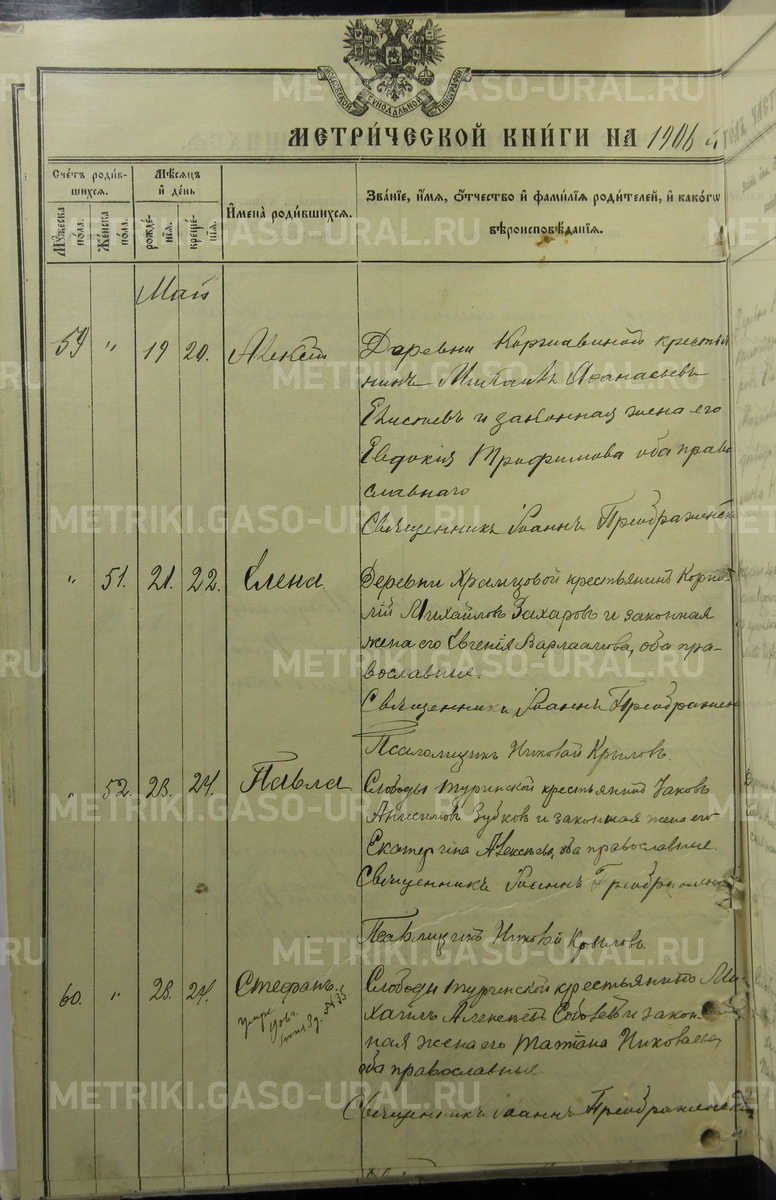 МОСКОВСКОЙ СѴНОДАЛЬНОЙ ТИПОГРАФІИ
МЕТРИ́ЧЕСКОЙ КНИ́ГИ НА 1906 г.
Счетъ роди́в-
шихся.
Мѣсяцъ
и де́нь
Имена̀ роди́вшихся.
Зва́ніе, и́мя, о́тчество и фами́лія роди́телей, и како́гѡ
вѣроисповѣ́данія.
Мꙋжеска по́ла.
Же́нска по́ла.
рожде́нія.
креще́нія.
Май
59 " 19 20. Алексѣй Деревни Коржавиной крестья
нинъ Михаилъ Аѳанасьевъ
Елисѣевъ и законная жена его
Евдокія Трофимова оба право
славнаго
Священникъ Іоаннъ Преображенскі
" 51. 21. 22. Елена. Деревни Храмцовой крестьянинъ Корни-
лій Михайловъ Захаровъ и законная
жена его Евгенія Варлаамова, оба пра-
вославные.
Священникъ Іоаннъ Преображен
Псаломщикъ Николай Крыловъ.
" 52. 23. 24. Павла Слободы Туринской крестьянинъ Іаковъ
Анисимовъ Зубковъ и законная жена его
Екатерина Алексѣева, оба православные.
Священникъ Іоаннъ Преображенскі
Псаломщикъ Николай Крыловъ.
60. " 23. 24. Стефанъ. Слободы Туринской крестьянинъ Ми-
хаилъ Алексѣевъ и закон
умеръ
ная жена его Татіана Николаева
оба православные.
Священникъ Іоаннъ Преображенскі
METRIKI.GASO-URAL.RU